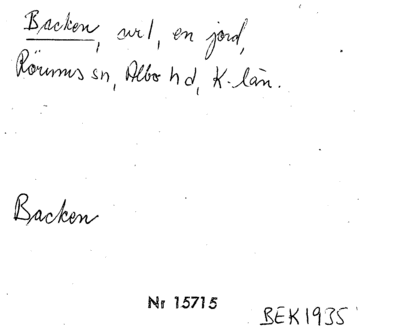 Backen, url, en jord,
Rörums sn, Albo hd, K-län.
Backen
Nr 15715
BEK 1935